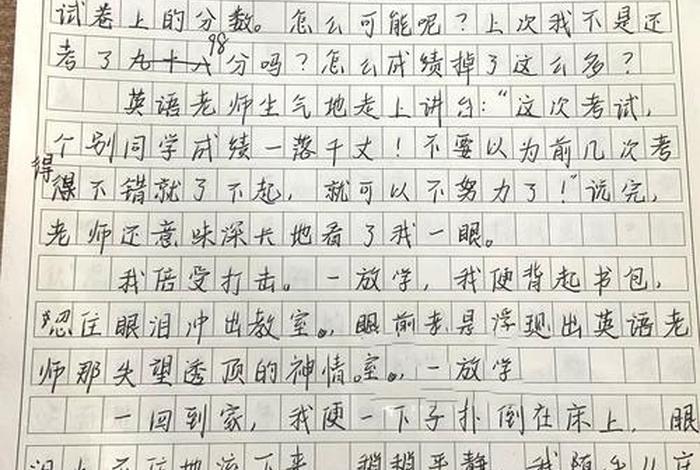 试卷上的分数。怎么可能呢？上次我不是还
考了九十八98分吗？怎么成绩掉了这么多？
英语老师生气地走上讲台：“这次考试，
个别同学成绩一落千丈！不要以为前几次考
得不错就了不起，就可以不努力了！”说完，
老师还意味深长地看了我一眼。
我倍受打击。一放学，我便背起书包，
忍住眼泪冲出教室。，眼前老是浮现出英语老
师那失望透顶的神情。室。，一放学
一回到家，我便一下子扑倒在床上，眼
泪止不住地流下来。稍稍平静，我随